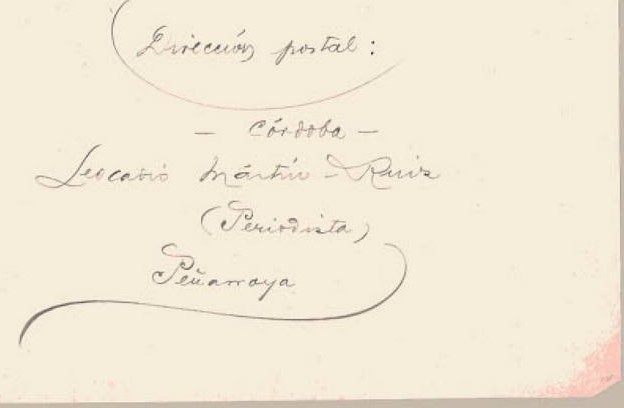 Dirección postal:
— Córdoba —
Leocadio Martín-Ruiz
(Periodista)
Peñarroya